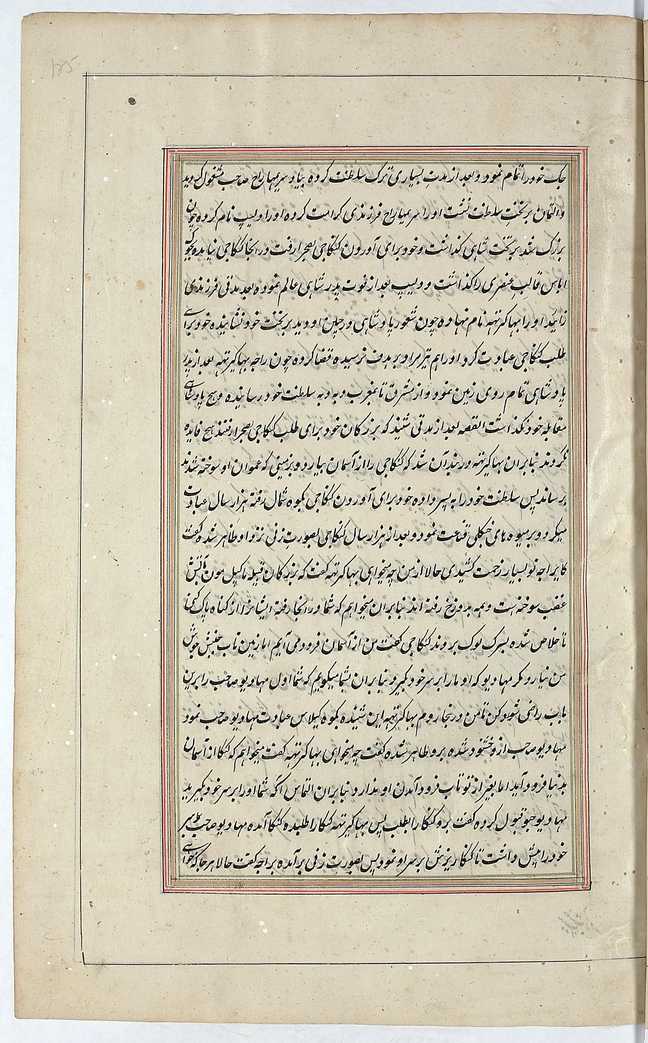 جک خود را تمام نمود و بعد از مدت بسیاری ترک سلطنت کرده بیاد سریمهاراج صاحب مشغول گردید
و التمان بر تخت سلطنت نشست او را سریمهاراج فرزندی کرامت کرده او را دلیپ نام کرده چون
بزرگ شد بر تخت شاهی گذاشت و خود برای آوردن گنگاجی بصحرا رفت در انجا گنگاجی نیامده
لباس قالب عنصری را گذاشت و دلیپ بعد از فوت پدر شاهی عالم نموده بعد مدتی فرزندی
زائید او را بهاگیرتهه نام نهاده چون شعور پادشاهی در جبین او دید بر تخت خود نشاینده خود برای
طلب گنگاجی عبادت کرد او را هم تیر مراد بر هدف نرسیده قضا کرده چون راجه بهاگیرتهه بعد از پدر
پادشاهی تمام روی زمین نمود و از مشرق تا مغرب دبدبه سلطنت خود رسانیده و هیچ پادشاهی
مقابله خود نگذاشت القصه بعد از مدتی شنید که بزرگان خود برای طلب گنگاجی بصحرا رفتند هیچ فایده
نکردند بنابران بهاگیرتهه در پند آن شد که گنگاجی را از آسمان بیارد و بزمینی که عموان او سوخته شدند
برساند پس سلطنت خود را به پسر داده خود برای آوردن گنگاجی بکوه شمال رفته هزار سال عبادت
میکرد و بر میوه های جنگلی قناعت نمود و بعد از هزار سال گنگاجی بصورت زنی نزد او ظاهر شده گفت
کای راجه تو بسیار زحمت کشیدی حالا از من چه میخواهی بهاگیرتهه گفت که بزرگان قبیله ما کپل مون بآتش
غضب سوخته است و همه بدوزخ رفته اند بنابران میخواهم که شما در انجا رفته ایشانرا از گناه پاک کنی
تا خلاص شده بسرک لوک بروند گنگاجی گفت من از آسمان فرود می آیم اما زمین تاب جنبش جوش
من نیارد مگر مهادیو که او ما را بر سر خود بگیرد بنابران بشما میگویم که شما اول مهادیو صاحب را برین
بابت راضی شود کن تا من در انجا روم بهاگیرتهه این شنیده بکوه کیلاس عبادت مهادیو صاحب نمود
مهادیو صاحب ازو خشنود شده برو ظاهر شده گفت چه میخواهی بهاگیرتهه گفت میخواهم که گنگا از آسمان
بدنیا فرود آید اما بغیر از تو تاب فرود آمدن او ندارد بنابران التماس اگه شما او را بر سر خود بگیرید
مهادیوجیو قبول کرده گفت برو گنگا را بطلب پس بهاگیرتهه گنگا را طلبیده گنگا آمده مهادیو صاحب سر
خود را پیش داشت تا گنگا ریزش بر سر او نمود پس بصورت زنی برآمده براجه گفت حالا هر جا که خواهی